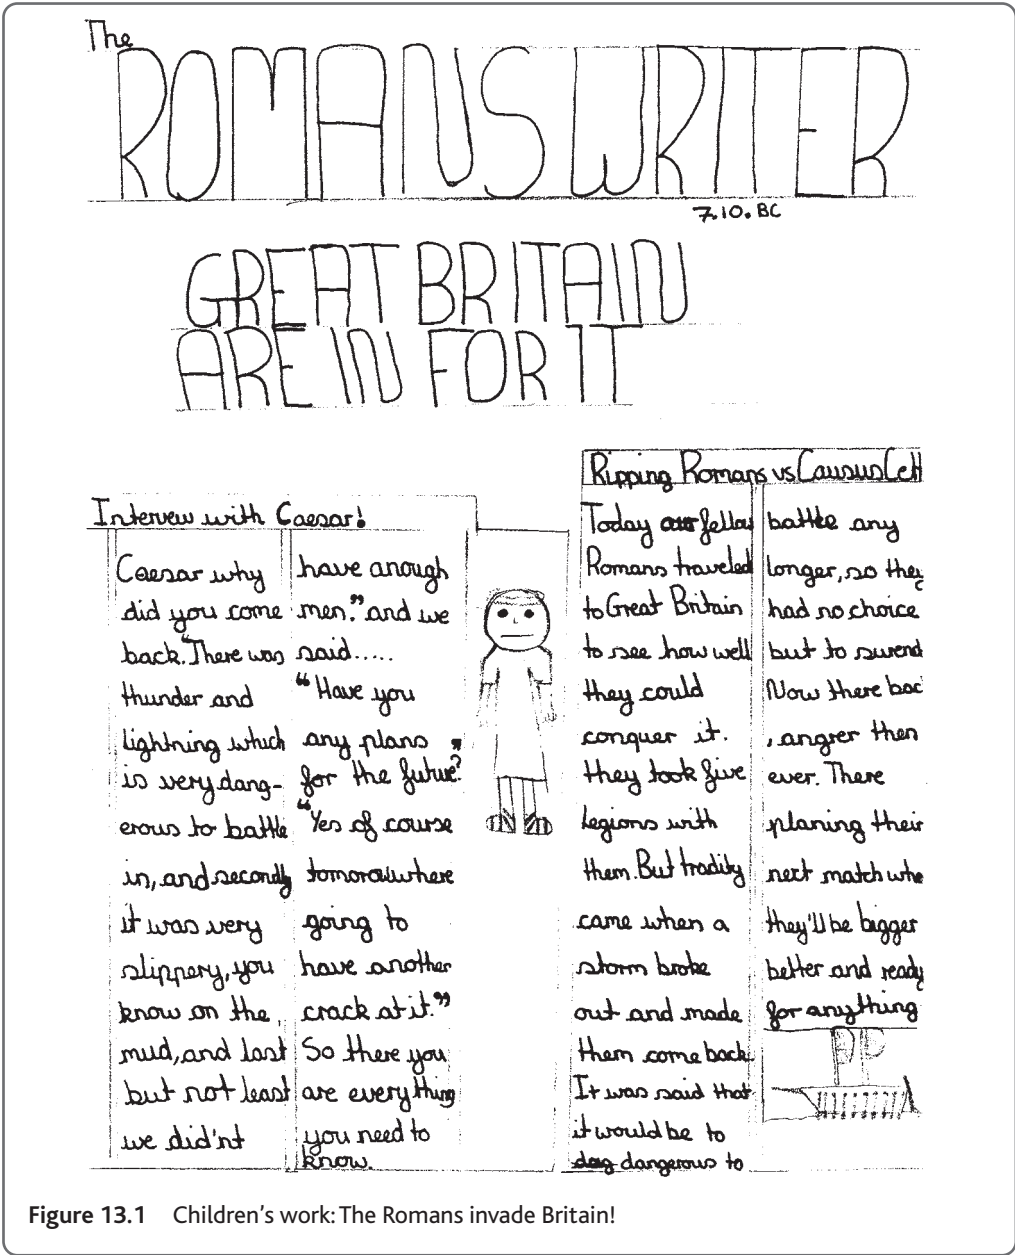 The
ROMANS WRITER
7.10.BC
GREAT BRITAIN
ARE IN FOR IT
Intervew with Caesar!
Caesar why
did you come
back."There was
thunder and
lightning which
is very dang-
erous to battle
in, and secondly
it was very
slippery, you
know on the
mud, and last
but not least
we did'nt
have anough
men." and we
said.....
"Have you
any plans
for the future?"
"Yes of course
tomorow where
going to
have another
crack at it."
So there you
are everything
you need to
know.
Ripping Romans vs Causus Celt
Today our fellow
Romans traveled
to Great Britain
to see how well
they could
conquer it.
they took five
legions with
them. But tradity
came when a
storm broke
out and made
them come back.
It was said that
it would be to
dangerous to
battle any
longer, so they
had no choice
but to surend
Now there bac
, angrer then
ever. There
planing their
next match whe
they'll be bigger
better and ready
for anything
Figure 13.1 Children's work: The Romans invade Britain!